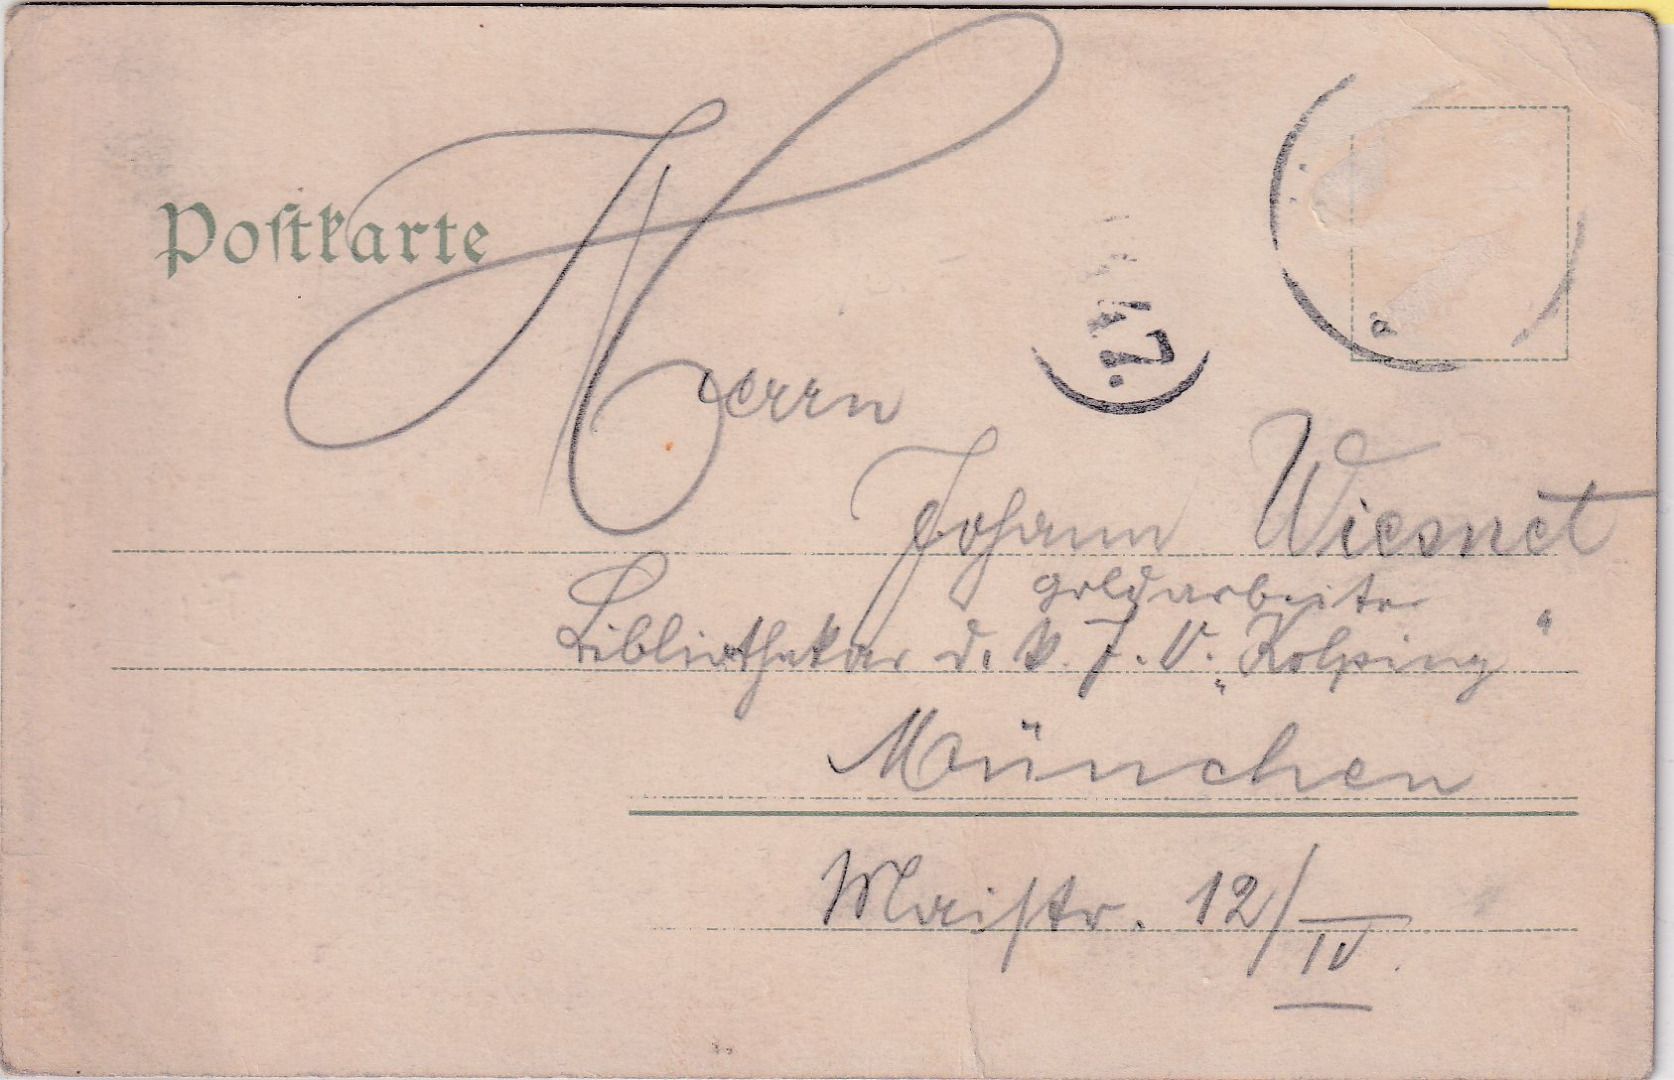 Postkarte
Herrn
Johann Wiesnet
Goldarbeiter
Bibliothekar d. k. J. V. „Kolping“
München
Maistr. 12/IV.
47.